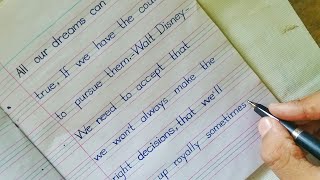 All our dreams can
true, If we have the cou
to pursue them.-Walt Disney-
We need to accept that
we won't always make the
right decisions, that we'll
up royally sometimes